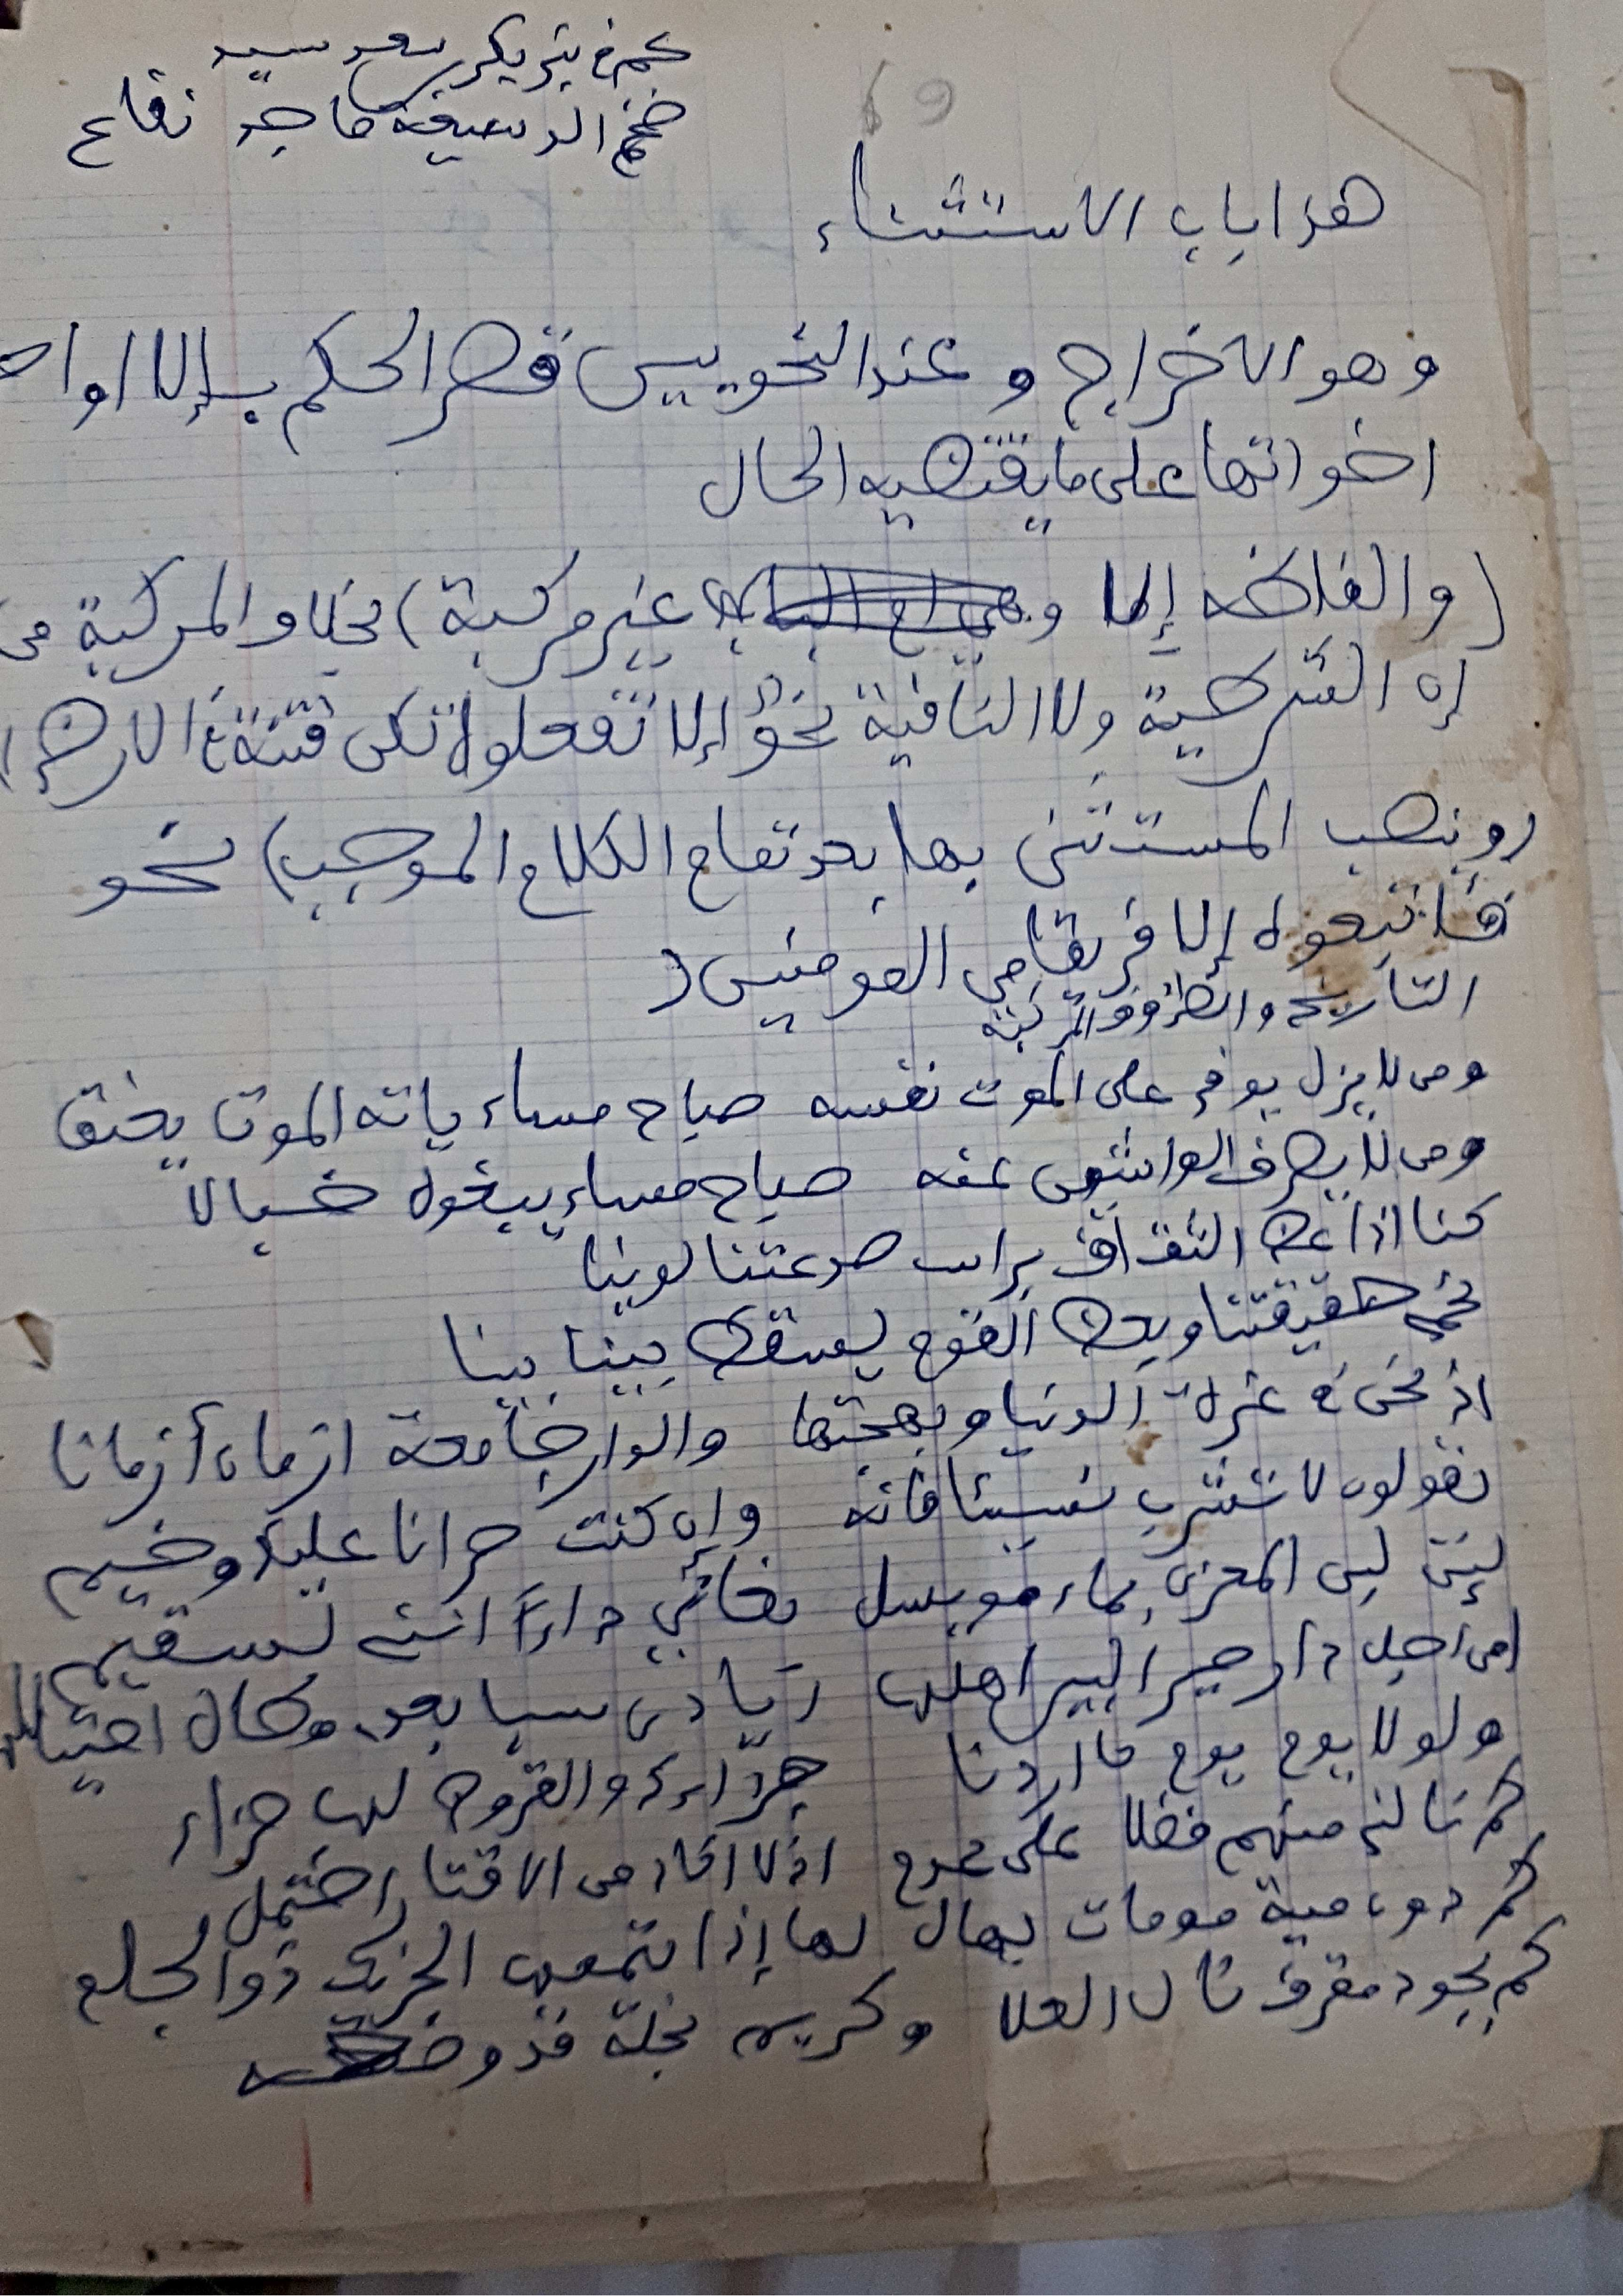 بن بكر سعد سيد
ضخم الدسيعة ماجد نفاع
69
هذا باب الاستثناء
وهو الاخراج وعند النحويين قصر الحكم بـإلا او احـ
اخواتها على ما يقتضيه الحال
(والفاظه إلا و غير مركبة) بخلاف المركبة من
إن الشرطية ولا النافية نحو إلا تفعلوه تكن فتنة في الارض
(وينصب المستثنى بها بعد تمام الكلام الموجب) نحو
فاتبعوه إلا فريقا من المومنين (
التاريخ والظروف المركبة
ومن لا يزل يوفي على الموت نفسه صباح مساء ياته الموت يخنق
ومن لا يصرف الواشين عنه صباح مساء يبغوه خبالا
كنا اذا عض الثقاف براس صعدتنا لوينا
نحمي حقيقتنا وبعض القوم يسقط بينا بينا
اذ نحن في غرة الدنيا وبهجتها والدار جامعة ازمان أزمانا
تقولون لا تشرب نسيئا فانه وإن كنت حرانا عليك وخيم
لئن لبن المعزى بماء مويسل بغاني داءً انني لسقيم
امن اجل دار صير البين اهلها ايادي سبا بعدي وطال احتيالها
ولولا يوم يوم ما اردنا جزاءك والقروض لها جزاء
كم نالني منهم فضلا على عدم اذ لا اكاد من الاقتار احتمل
كم دون مية مومات يهال لها إذا تيممها الخريت ذو الجلد
كم بجود مقرف نال العلا وكريم بخله قد وضعه